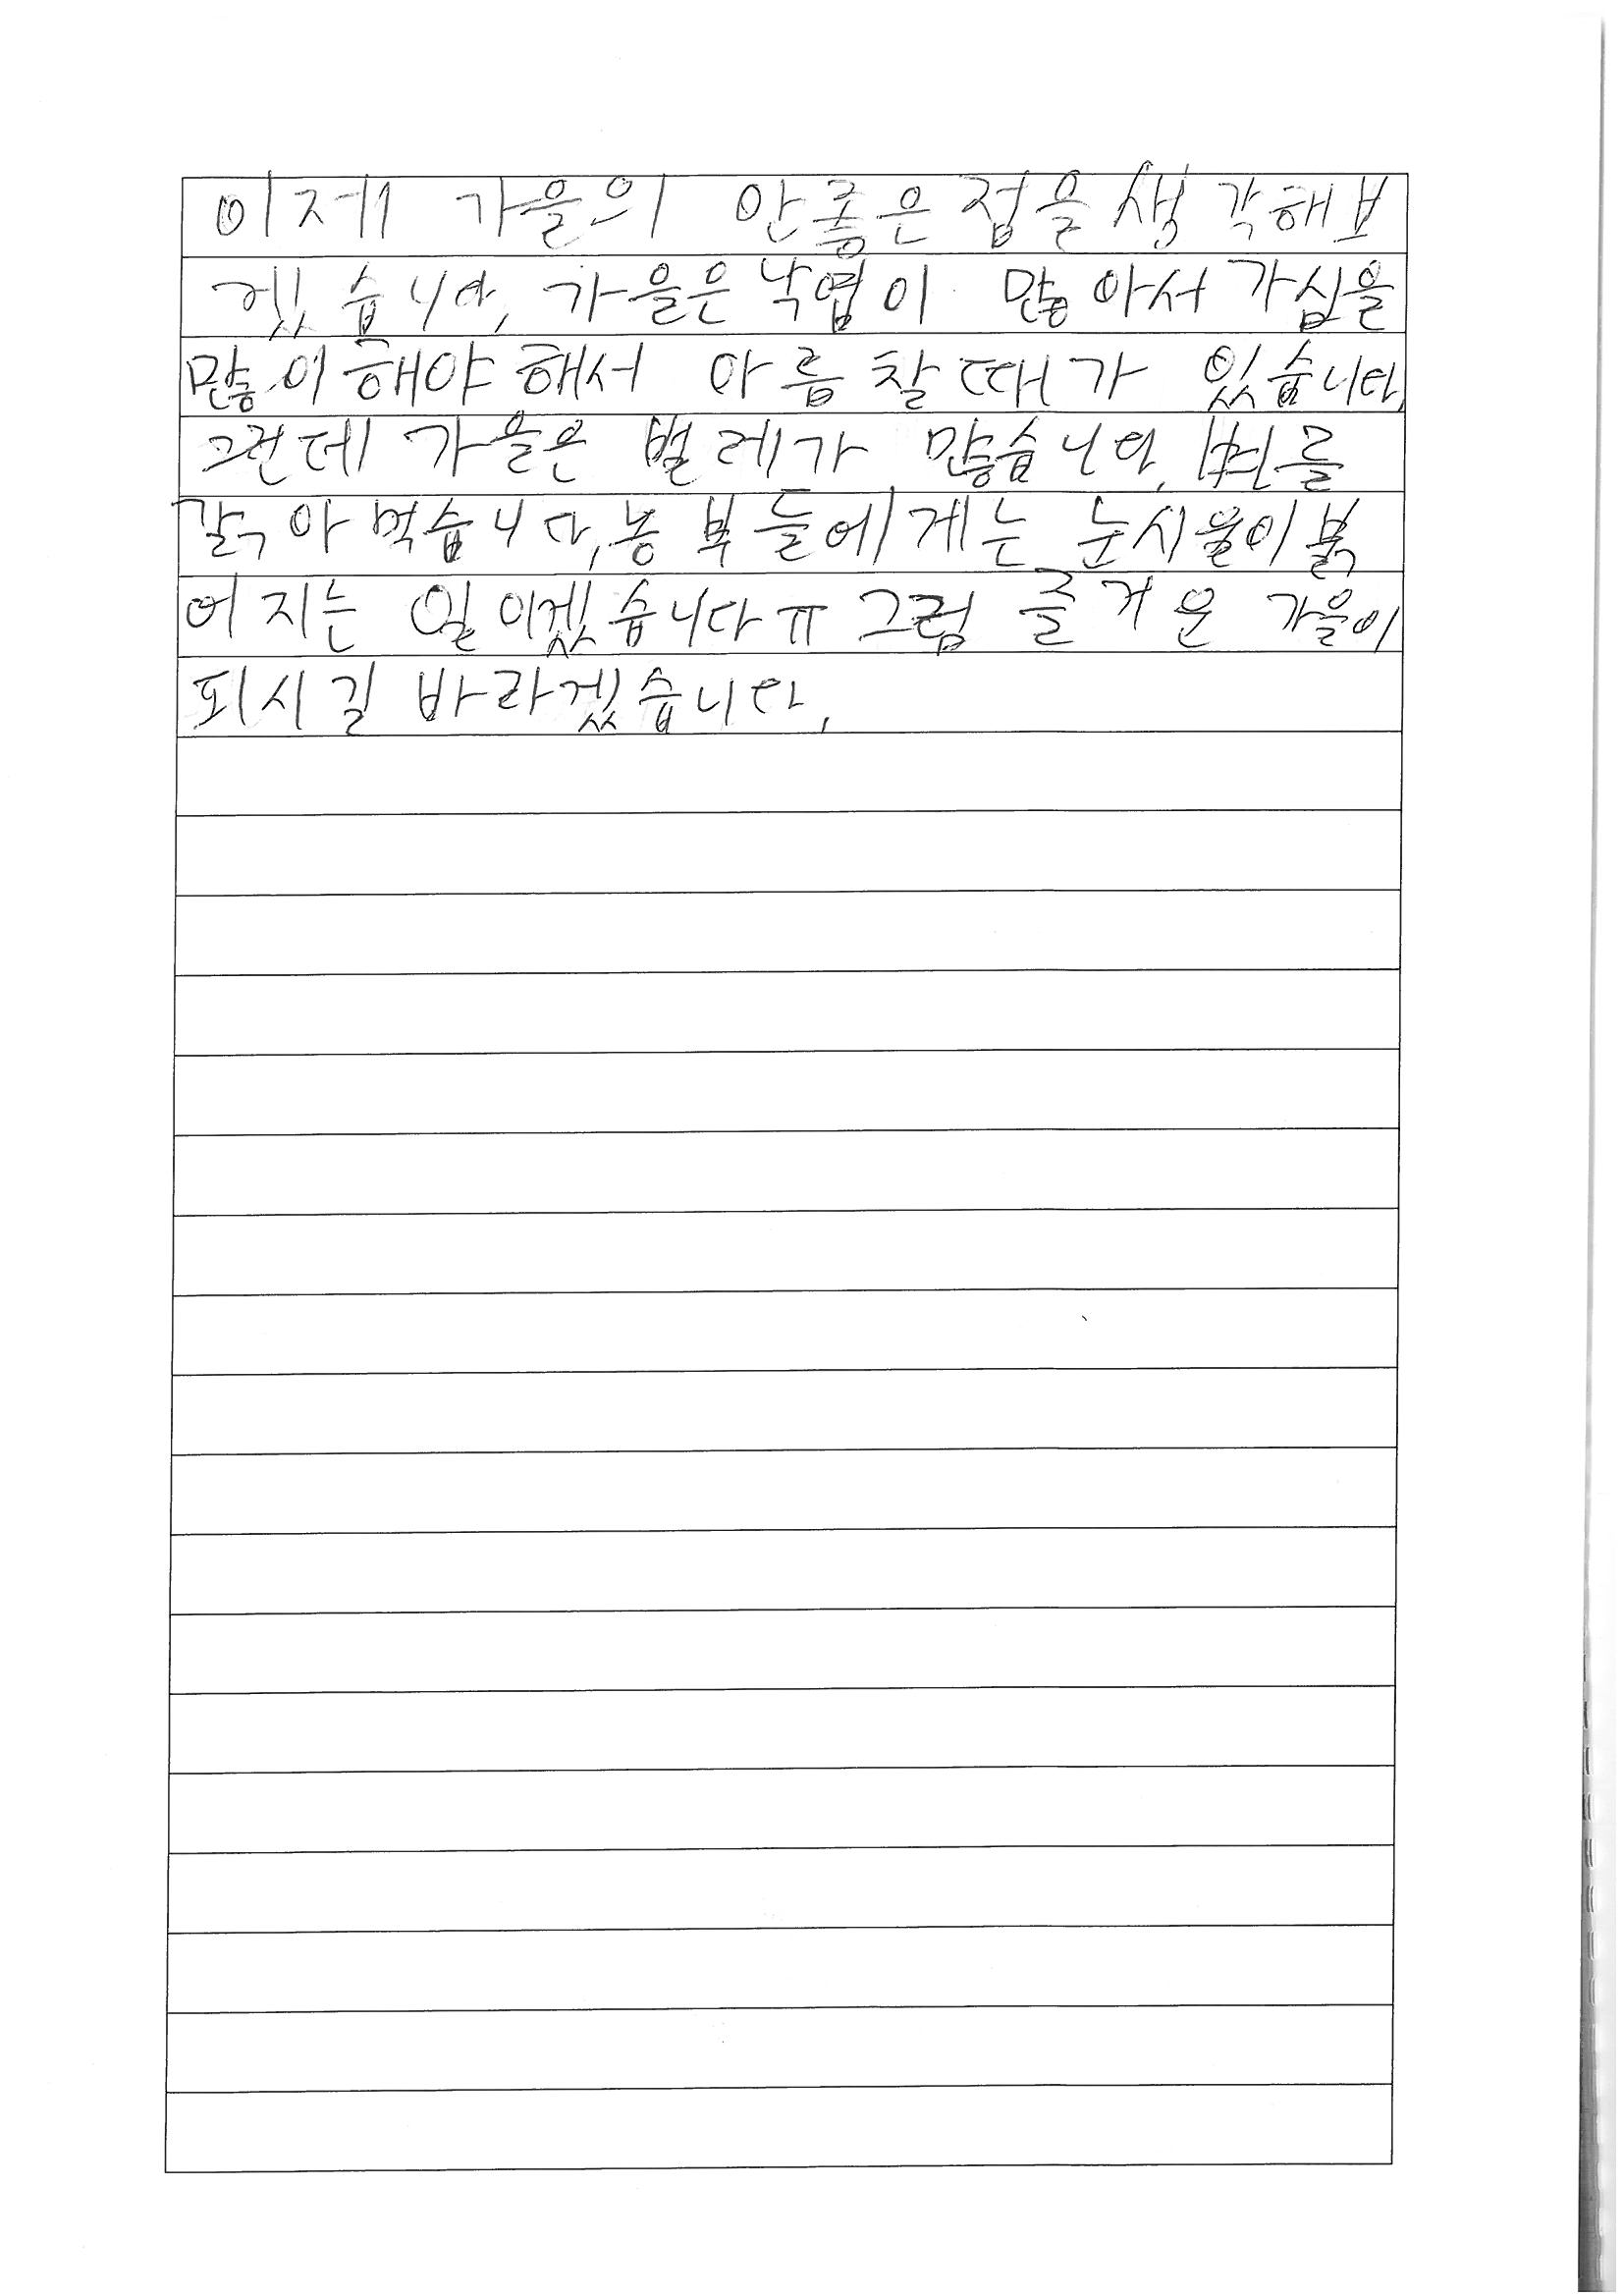 이제 가을의 안좋은 점을 생각해보
겠습니다, 가을은 낙엽이 많아서 가심을
많이해야해서 아름찰때가 있습니다,
그런데 가을은 벌레가 많습니다, 벼를
갉아먹습니다,농부들에게는 눈시울이붉
어지는 일이겠습니다ㅠ 그럼 즐거운 가을이
되시길 바라겠습니다,